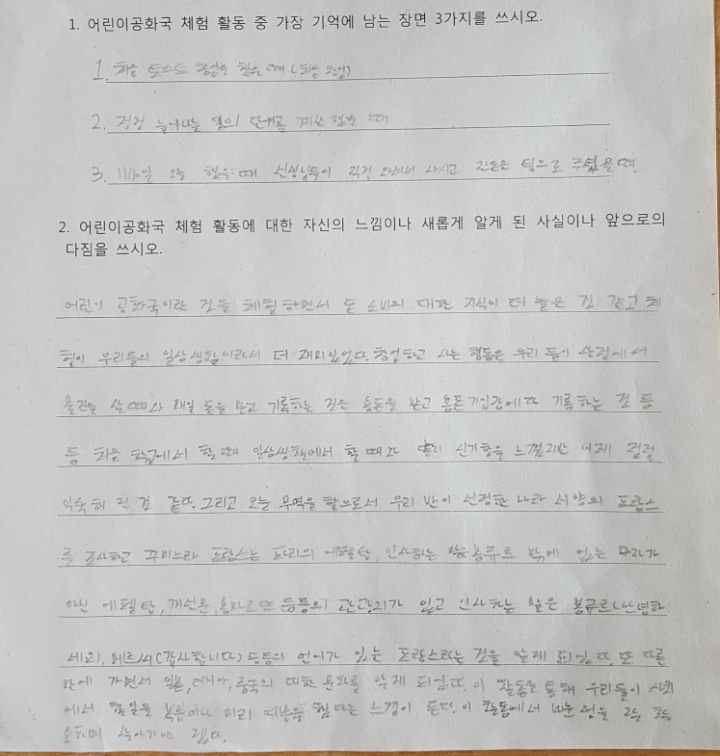 1. 어린이공화국 체험 활동 중 가장 기억에 남는 장면 3가지를 쓰시오.
1. 처음 토스트 창업을 했을 때
2. 점점 늘어나는 돈의 단위를 계산 했을 때
3. 오늘 했을 때 선생님들이 직접 오셔서 사시고 잔돈은 팁으로 주셨을 때.
2. 어린이공화국 체험 활동에 대한 자신의 느낌이나 새롭게 알게 된 사실이나 앞으로의
다짐을 쓰시오.
어린이 공화국이란 것을 체험하면서 돈 소비의 대한 지식이 더 늘은 것 같고 체
험이 우리들의 일상생활이라서 더 재미있었다. 창업하고 사는 활동은 우리 들이 상점에서
물건을 살 때와 매일 돈을 받고 기록하는 것은 용돈을 받고 용돈기입장에다 기록하는 것 등
등 처음 학급에서 할 때 일상생활에서 할 때와 달리 신기함을 느꼈지만 이제 점점
익숙해 진 것 같다. 그리고 오늘 무역을 함으로서 우리 반이 선정한 나라 서양의 프랑스
를 조사하고 꾸미느라 프랑스는 파리의 에펠탑, 인사하는 말 봉쥬르 밖에 없는 나라가
아닌 에펠탑, 개선문, 등등의 관광지가 있고 인사하는 말은 봉쥬르(안녕하
세요), 메르씨(감사합니다) 등등의 언어가 있는 프랑스라는 것을 알게 되었다. 또 다른
반에 가면서 일본, 러시아, 중국의 대한 문화를 알게 되었다. 이 활동을 통해 우리들이 사회
에서 할 일을 복습이나 미리 해본 느낌이 든다. 이 활동에서 배운 것을
살아가야 겠다.